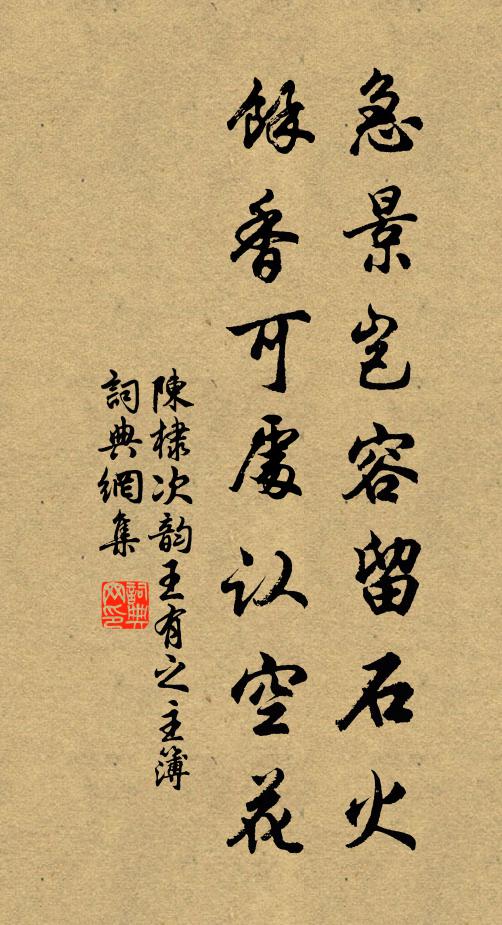 急景岂容留石火
餘香可處认空花
陳棣次韵王有之主簿
詞典網集
詞典网印